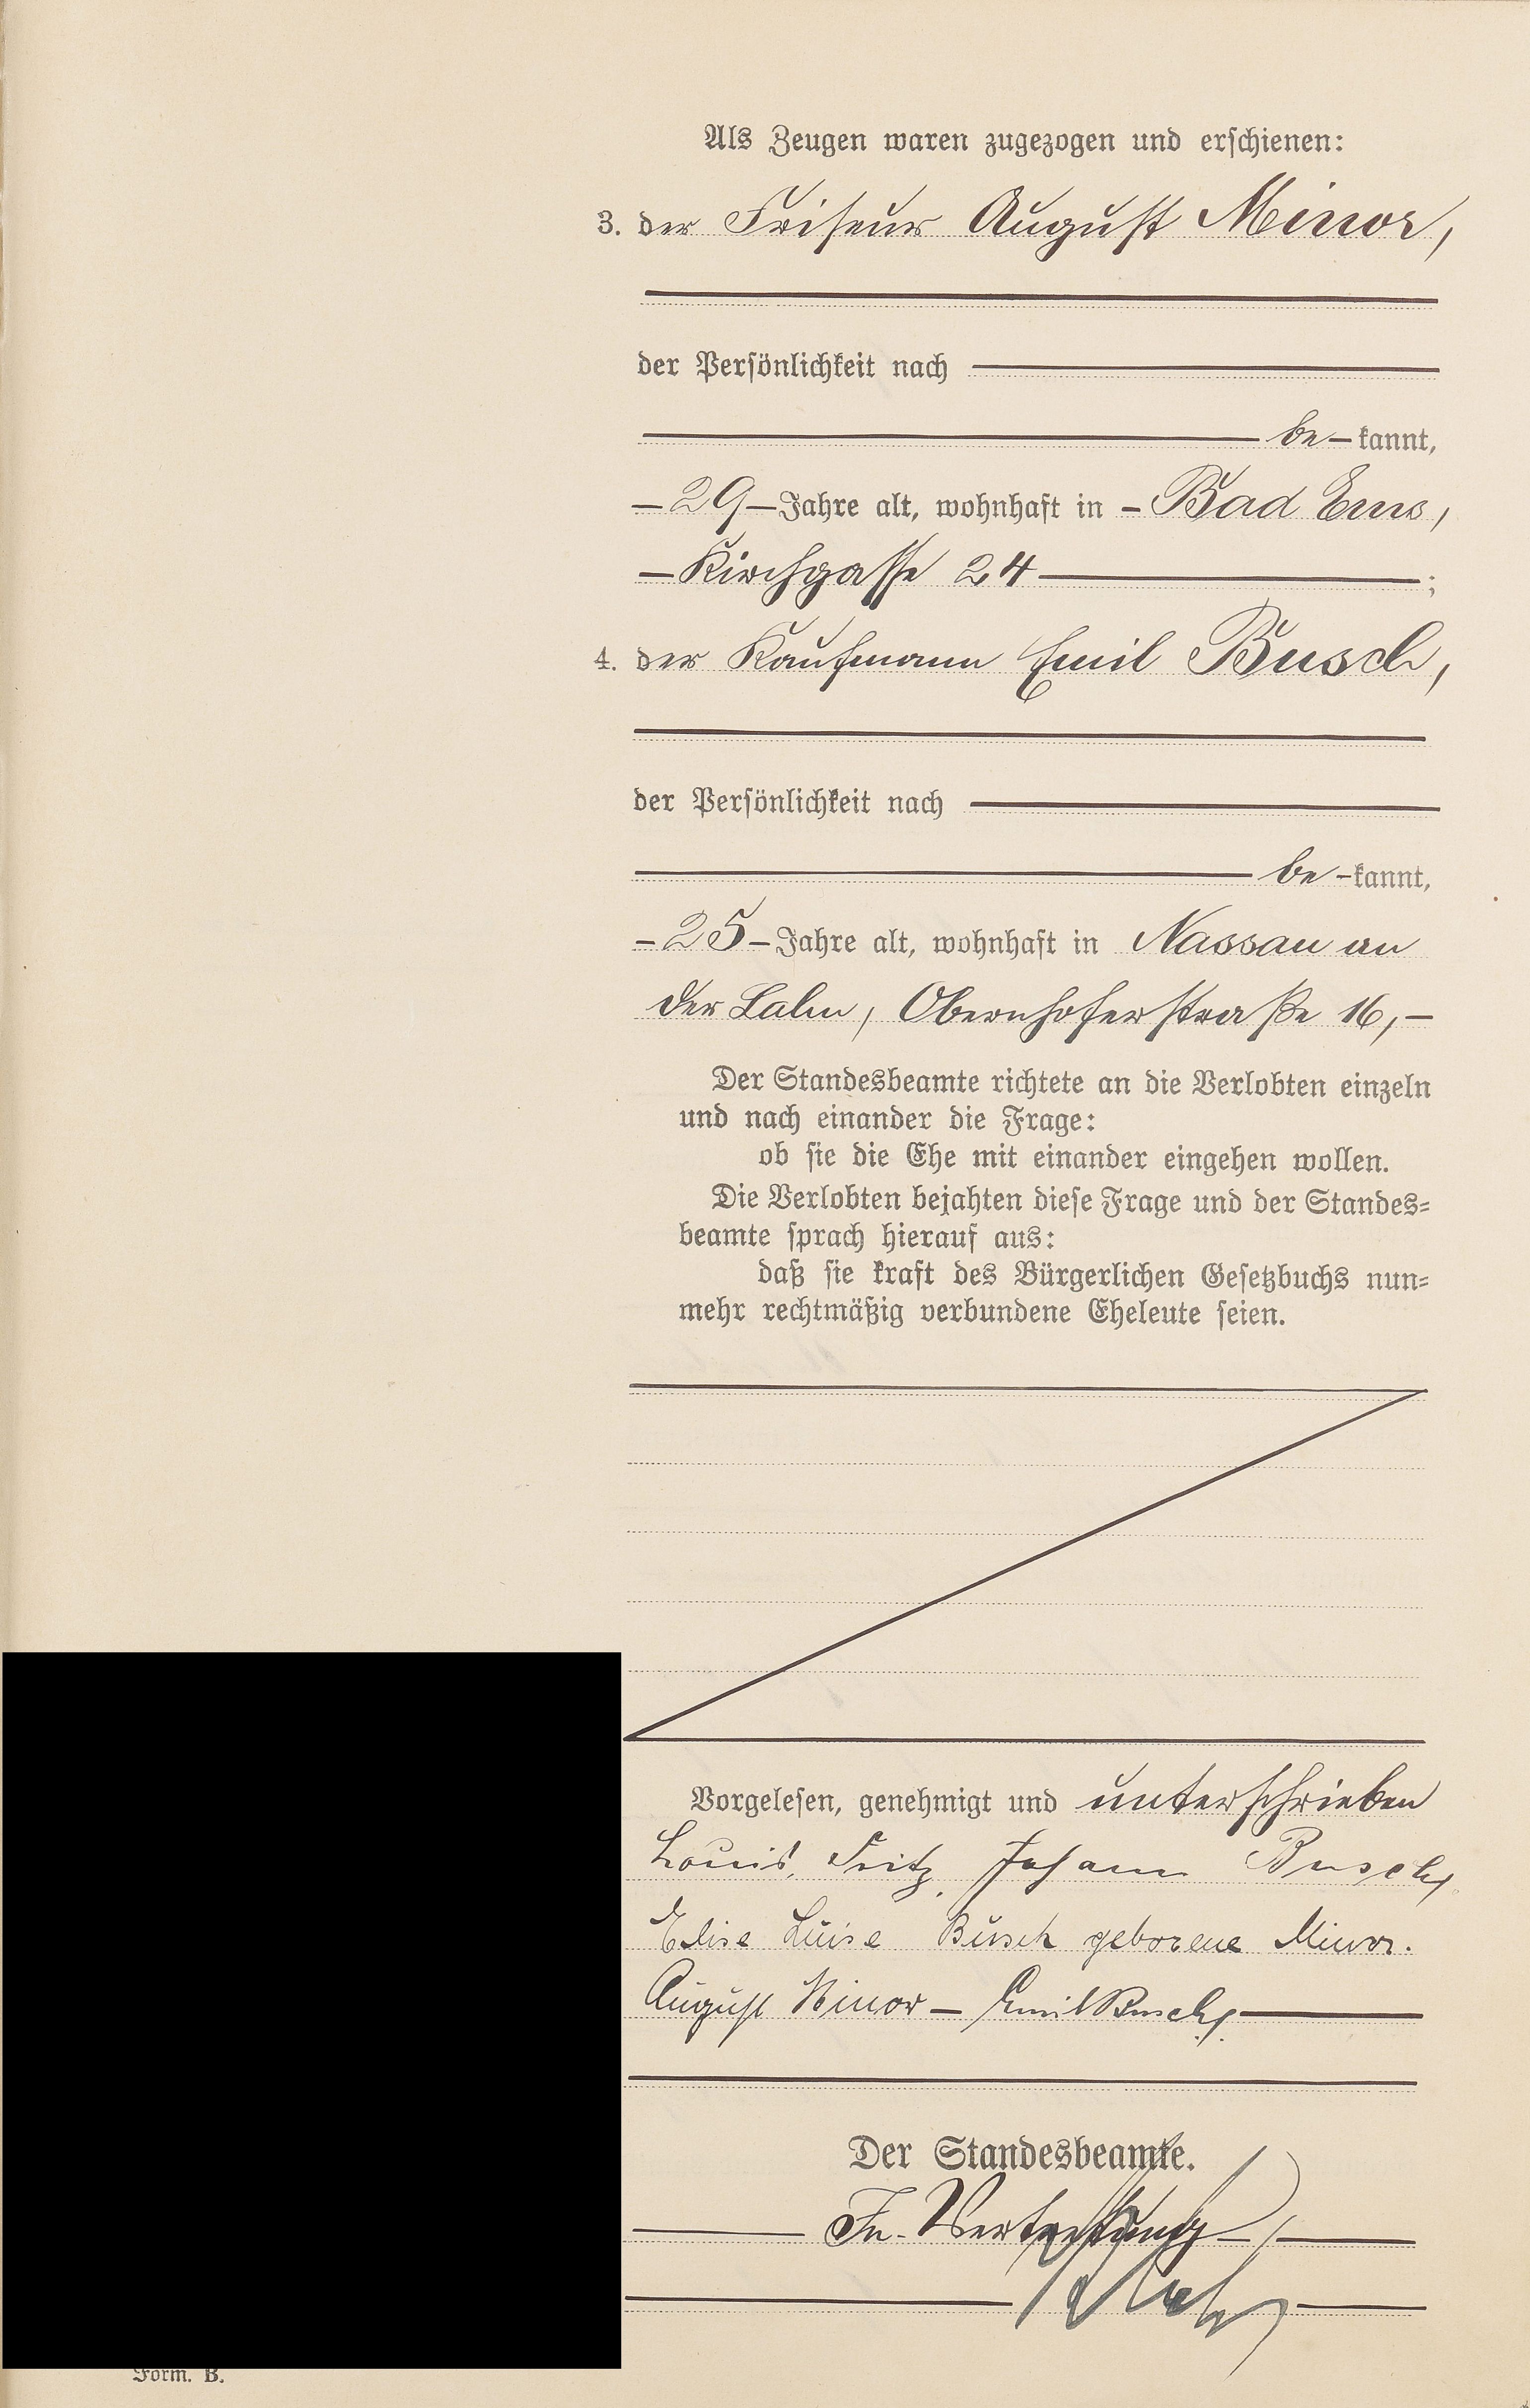 Als Zeugen waren zugezogen und erschienen:
3. der Friseur August Minor,
der Persönlichkeit nach
be-kannt,
-29-Jahre alt, wohnhaft in -Bad Ems,
-Kirchgasse 24 ;
4. der Kaufmann Emil Busch,
der Persönlichkeit nach
be-kannt,
-25-Jahre alt, wohnhaft in Nassau an
der Lahn, Obernhoferstraße 16,-
Der Standesbeamte richtete an die Verlobten einzeln
und nach einander die Frage:
ob sie die Ehe mit einander eingehen wollen.
Die Verlobten bejahten diese Frage und der Standes=
beamte sprach hierauf aus:
daß sie kraft des Bürgerlichen Gesetzbuchs nun=
mehr rechtmäßig verbundene Eheleute seien.
Vorgelesen, genehmigt und unterschrieben
Louis, Fritz, Johann Busch,
Elise Luise Busch geborene Minor.
August Minor - Emil Busch,
Der Standesbeamte.
In Vertretung
Form. B.